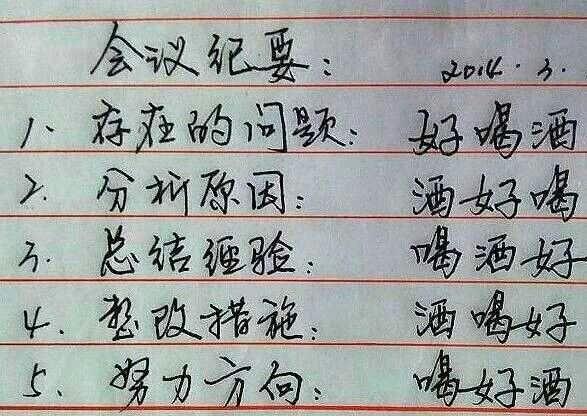 会议纪要：　2014.3.
1、存在的问题：好喝酒
2.分析原因：酒好喝
3.总结经验：喝酒好
4.整改措施：酒喝好
5.努力方向：喝好酒